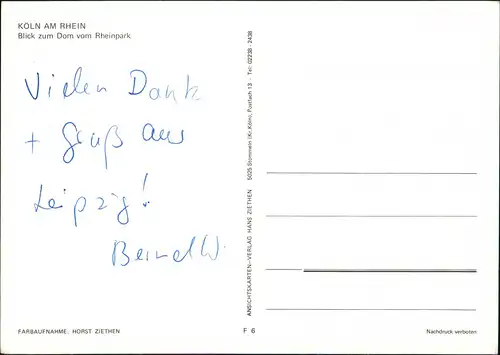 KÖLN AM RHEIN
Blick zum Dom vom Rheinpark
Vielen Dank
+ Gruß aus
Leipzig!
Bernd W.
FARBAUFNAHME: HORST ZIETHEN
F 6
ANSICHTSKARTEN-VERLAG HANS ZIETHEN 5025 Stommeln (Kr. Köln), Postfach 13 · Tel: 02238 - 2438
Nachdruck verboten